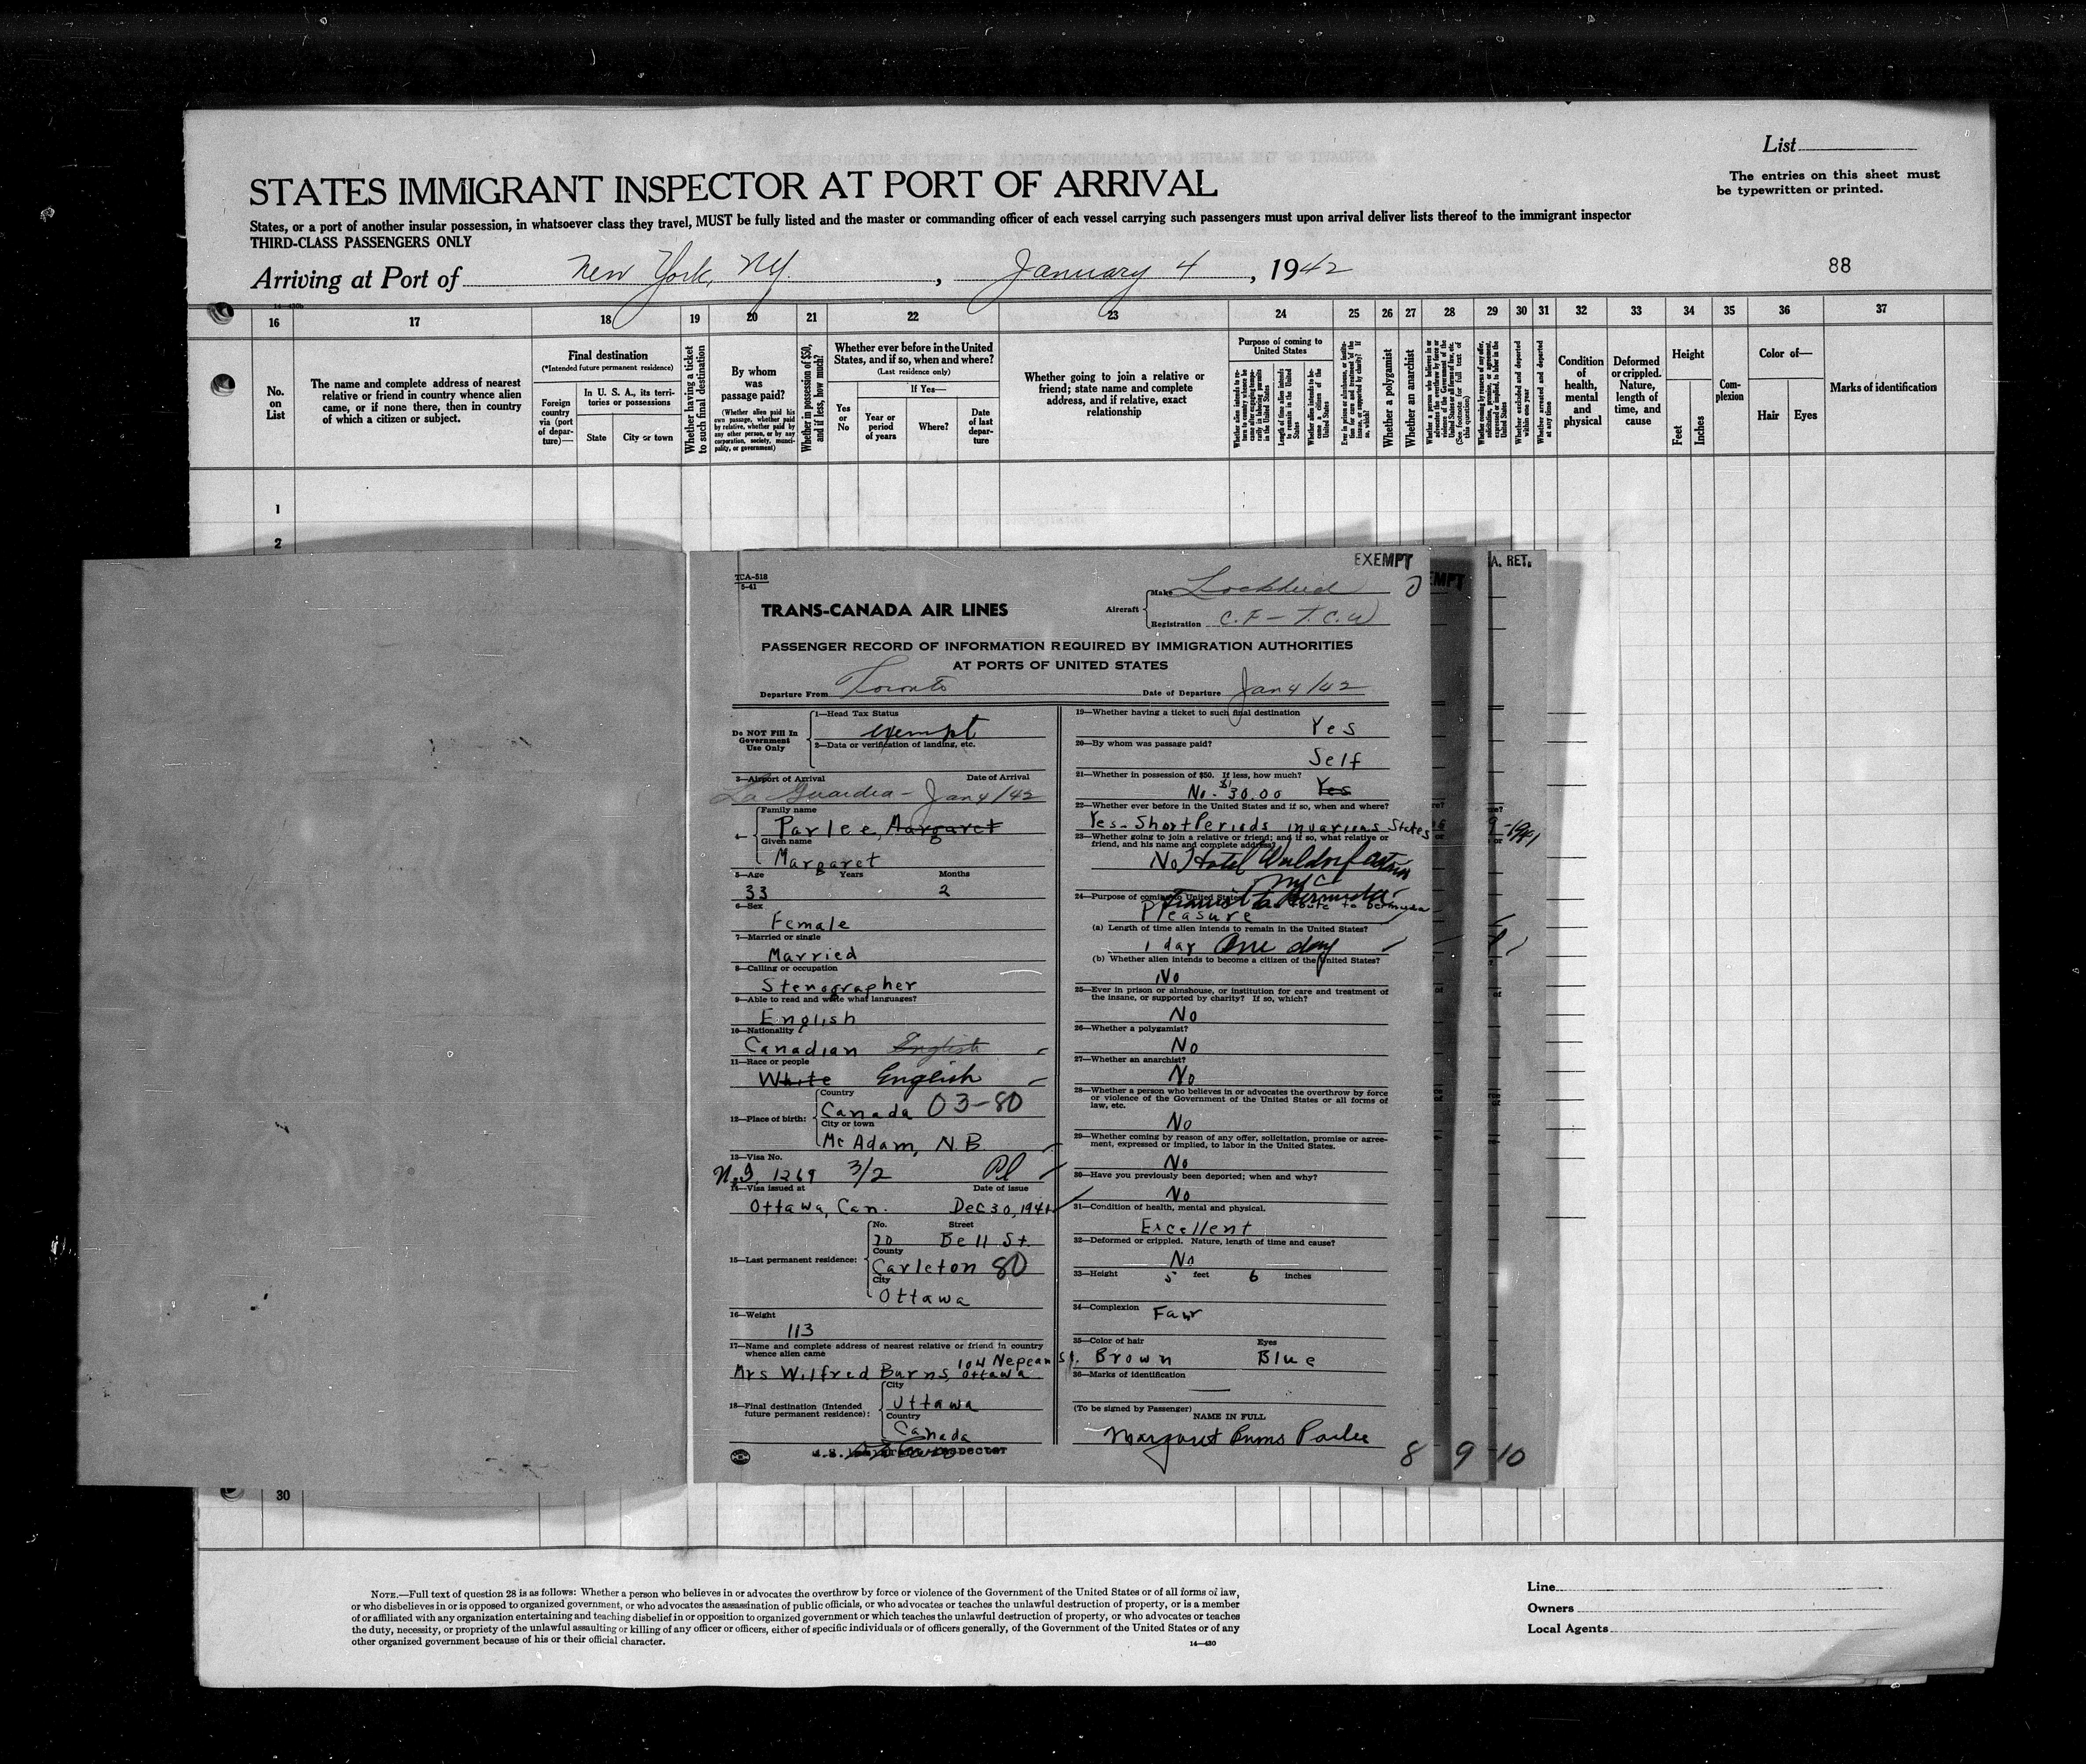 List
STATES IMMIGRANT INSPECTOR AT PORT OF ARRIVAL
The entries on this sheet must
be typewritten or printed.
States, or a port of another insular possession, in whatsoever class they travel, MUST be fully listed and the master or commanding officer of each vessel carrying such passengers must upon arrival deliver lists thereof to the immigrant inspector
THIRD-CLASS PASSENGERS ONLY
Arriving at Port of New York, NY. , January 4 , 1942
88
14—430b
16 17 18 19 20 21 22 23 24 25 26 27 28 29 30 31 32 33 34 35 36 37
No.
on
List
The name and complete address of nearest
relative or friend in country whence alien
came, or if none there, then in country
of which a citizen or subject.
Final destination
(*Intended future permanent residence)
Foreign
country
via (port
of depar-
ture)—
In U. S. A., its terri-
tories or possessions
State
City or town
Whether having a ticket
to such final destination
By whom
was
passage paid?
(Whether alien paid his
own passage, whether paid
by relative, whether paid by
any other person, or by any
corporation, society, munici-
pality, or government)
Whether in possession of $50,
and if less, how much?
Whether ever before in the United
States, and if so, when and where?
(Last residence only)
Yes
or
No
If Yes—
Year or
period
of years
Where?
Date
of last
depar-
ture
Whether going to join a relative or
friend; state name and complete
address, and if relative, exact
relationship
Purpose of coming to
United States
Length of time alien intends
to remain in the United
States
Whether alien intends to be-
come a citizen of the
United States
Whether a polygamist
Whether an anarchist
(See footnote for full text of
this question)
Whether excluded and deported
within one year
Whether arrested and deported
at any time
Condition
of
health,
mental
and
physical
Deformed
or crippled.
Nature,
length of
time, and
cause
Height
Feet
Inches
Com-
plexion
Color of—
Hair
Eyes
Marks of identification
1
2
EXEMPT
EMPT
A. RET.
TCA-518
5-41
TRANS-CANADA AIR LINES
Aircraft
Make Lockheed
Registration C.F - T.C.W
PASSENGER RECORD OF INFORMATION REQUIRED BY IMMIGRATION AUTHORITIES
AT PORTS OF UNITED STATES
Departure From Toronto Date of Departure Jan 4/42
Do NOT Fill In
Government
Use Only
1—Head Tax Status
exempt
2—Data or verification of landing, etc.
3—Airport of Arrival Date of Arrival
La Guardia - Jan 4/42
4—
Family name
Parlee, Margaret
Given name
Margaret
5—Age Years Months
33 2
6—Sex
Female
7—Married or single
Married
8—Calling or occupation
Stenographer
9—Able to read and write what languages?
English
10—Nationality
Canadian English
11—Race or people
White English
12—Place of birth:
Country
Canada 03-80
City or town
Mc Adam, N.B.
13—Visa No.
N.I. 1269 3/2
14—Visa issued at Date of issue
Ottawa, Can. Dec 30, 1941
15—Last permanent residence:
No. Street
70 Bell St.
County
Carleton 80
City
Ottawa
16—Weight
113
17—Name and complete address of nearest relative or friend in country
whence alien came
Mrs Wilfred Burns, 104 Nepean St. Ottawa
18—Final destination (Intended
future permanent residence):
City
Ottawa
Country
Canada
19—Whether having a ticket to such final destination
Yes
20—By whom was passage paid?
Self
21—Whether in possession of $50. If less, how much?
No - $30.00 Yes
22—Whether ever before in the United States and if so, when and where?
Yes - Short Periods in various States
23—Whether going to join a relative or friend; and if so, what relative or
friend, and his name and complete address?
No Hotel Waldorf Astoria
NYC
24—Purpose of coming to United States
Transit to Bermuda
route to Bermuda
Pleasure
(a) Length of time alien intends to remain in the United States?
1 day One day
(b) Whether alien intends to become a citizen of the United States?
No
25—Ever in prison or almshouse, or institution for care and treatment of
the insane, or supported by charity? If so, which?
No
26—Whether a polygamist?
No
27—Whether an anarchist?
No
28—Whether a person who believes in or advocates the overthrow by force
or violence of the Government of the United States or all forms of
law, etc.
No
29—Whether coming by reason of any offer, solicitation, promise or agree-
ment, expressed or implied, to labor in the United States.
No
30—Have you previously been deported; when and why?
No
31—Condition of health, mental and physical.
Excellent
32—Deformed or crippled. Nature, length of time and cause?
No
33—Height 5 feet 6 inches
34—Complexion Fair
35—Color of hair Eyes
Brown Blue
36—Marks of identification
(To be signed by Passenger)
NAME IN FULL
Margaret Burns Parlee
8 9 10
30
NOTE.—Full text of question 28 is as follows: Whether a person who believes in or advocates the overthrow by force or violence of the Government of the United States or of all forms of law,
or who disbelieves in or is opposed to organized government, or who advocates the assassination of public officials, or who advocates or teaches the unlawful destruction of property, or is a member
of or affiliated with any organization entertaining and teaching disbelief in or opposition to organized government or which teaches the unlawful destruction of property, or who advocates or teaches
the duty, necessity, or propriety of the unlawful assaulting or killing of any officer or officers, either of specific individuals or of officers generally, of the Government of the United States or of any
other organized government because of his or their official character.
14—430
Line
Owners
Local Agents